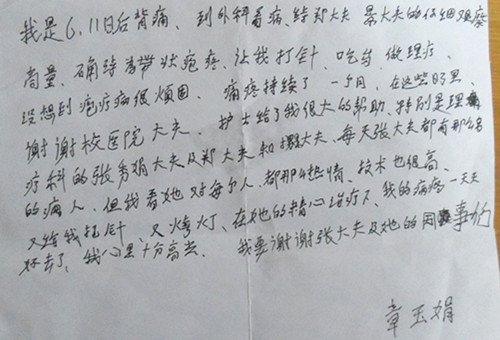 我是6.11日后背痛、到外科看病、经郑大夫 大夫的仔细观察
商量、确诊为带状疱疹、让我打针、吃药、做理疗、
没想到疱疹病很顽固、痛疼持续了一个月、在这些日子里、
谢谢校医院大夫、护士给了我很大的帮助、特别是理
疗科的张秀娟大夫及郑大夫和 大夫、每天张大夫都有那么多
的病人、但我看她对每个人、都那么热情、技术也很高、
又给我打针、又烤灯、在她的精心治疗下、我的病疼一天天
好去了、我心里十分高兴、我要谢谢张大夫及她的同事们
章玉娟